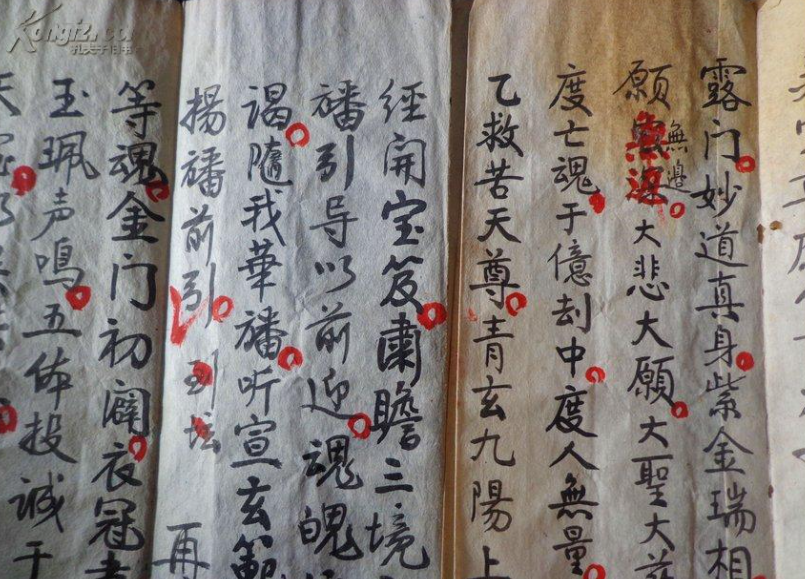 露门妙道真身紫金瑞相
願無邊大悲大願大聖大慈
無邊
度亡魂于億刦中度人無量
乙救苦天尊青玄九陽上
經開宝笈肅瞻三境
旛引导以前迎魂魄
谒隨我華旛听宣玄範
揚旛前引到坛
再
等魂金门初闢衣冠
玉珮声鳴五体投誠于
Kongfz.com
孔夫子旧书